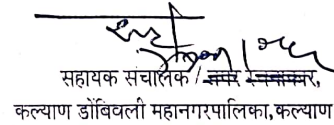 सहायक संचालक / नगर रचनाकार,
कल्याण डोंबिवली महानगरपालिका, कल्याण